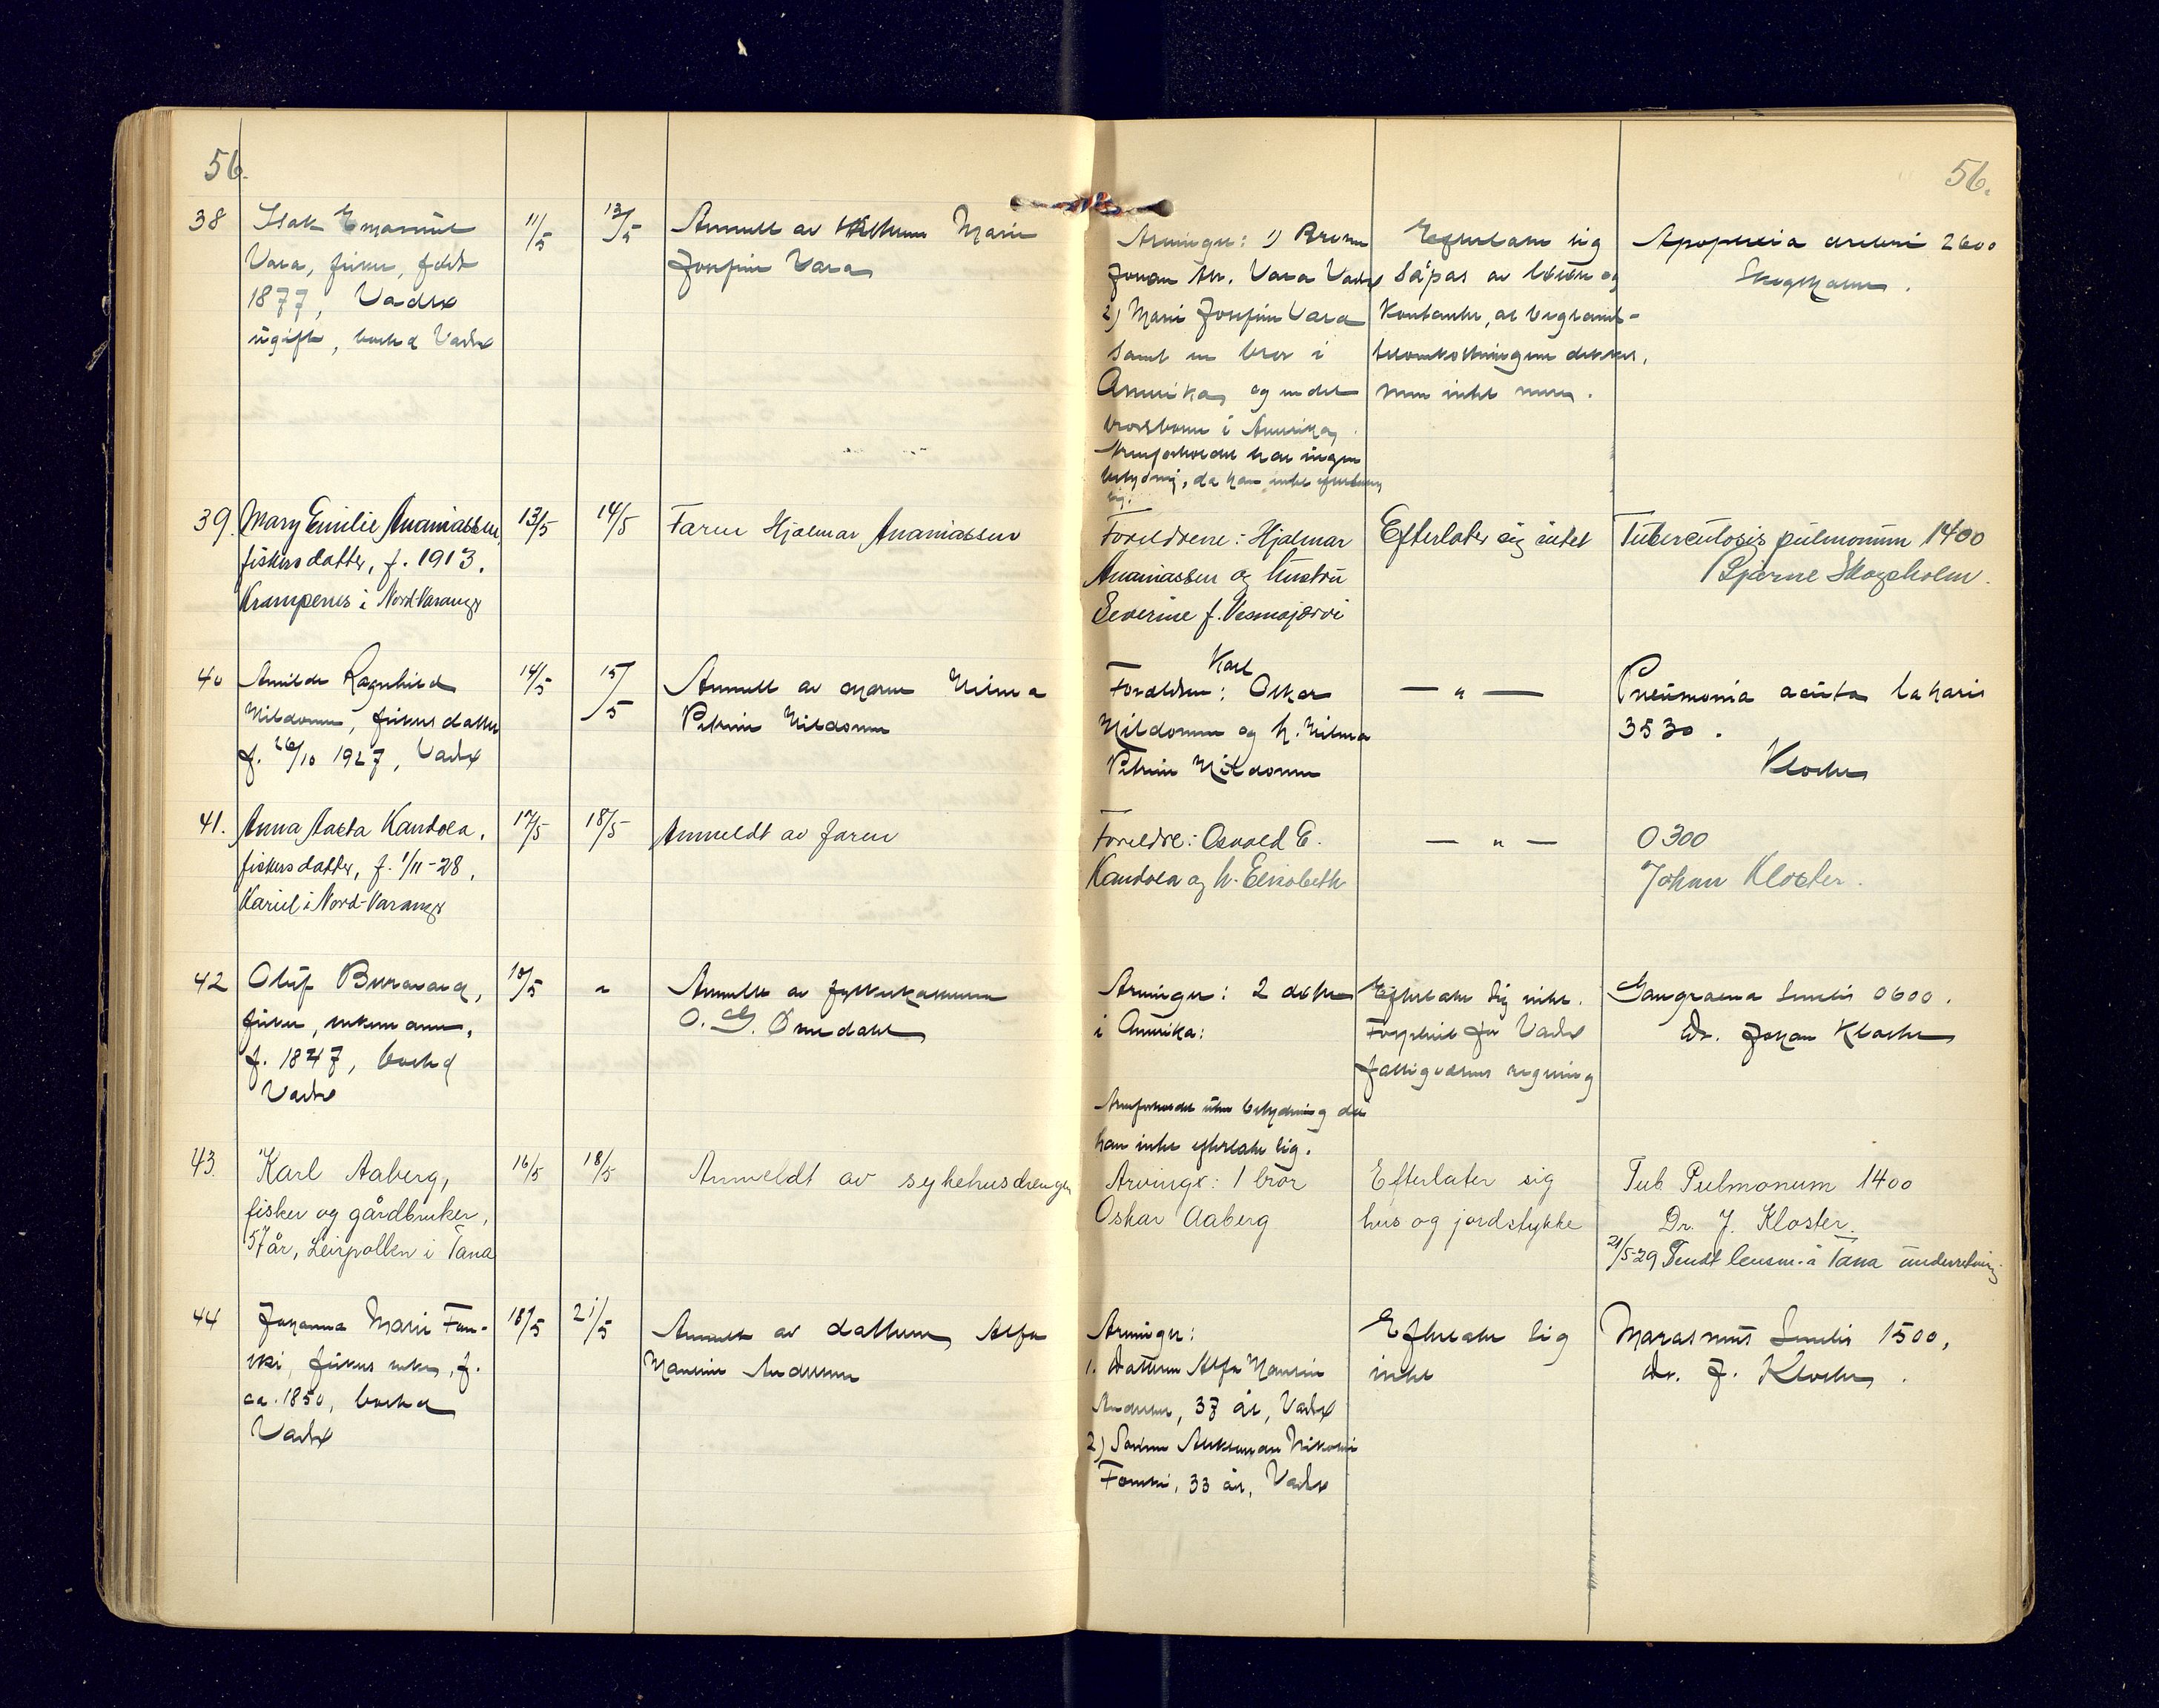 56.
56.
38
Isak Emanuel
Vara, fisker, født
1877, Vadsø
ugift, bosted Vadsø
11/5
13/5
Anmeldt av Marie
Josefine Vara
Arvinger: 1) Broren
Johan Vara Vadsø
2) Marie Josefine Vara
samt en bror i
Amerika og endel
brorsbarn i Amerika
Arveforholdet har ingen
betydning, da han intet efterlater
sig.
Efterlater sig
såpas av løsøre og
kontanter, at begravel-
sesomkostningene dekkes,
men intet mere.
Apoplexia cerebri 2600
Skogsholm.
39.
Mary Emilie Ananiassen,
fiskersdatter, f. 1913.
Krampenes i Nord-Varanger
13/5
14/5
Faren Hjalmar Ananiassen
Foreldrene: Hjalmar
Ananiassen og hustru
Severine f.
Efterlater sig intet
Tuberculosis pulmonum 1400
Bjarne Skogsholm.
40
Ragnhild
Mildonen, fiskersdatter
f. 26/10 1927, Vadsø
14/5
15/5
Anmeldt av moren Hilma
Petrine Mildonen
Karl
Foreldre: Oskar
Mildonen og h. Hilma
Petrine Mildonen
— " —
Pneumonia acuta
3530.
Kloster
41.
Anna Aasta Kandola,
fiskersdatter, f. 1/11-28,
Kariel i Nord-Varanger
17/5
18/5
Anmeldt av faren
Foreldre: Osvald E.
Kandola og h. Elisabeth
— " —
0300
Johan Kloster.
42
Oluf
fisker, enkemann,
f. 1847, bosted
Vadsø
10/5
"
Anmeldt av
O. Ømdahl
Arvinger: 2 døtre
i Amerika:
Arveforholdet uten betydning da
han intet efterlater sig.
Efterlater sig intet.
Forpleiet for Vadsø
fattigvesens regning
Gangraena senilis 0600.
Dr. Johan Kloster
43.
Karl Aaberg,
fisker og gårdbruker,
57 år, Leirpollen i Tana
16/5
18/5
Anmeldt av sykehusdrengen
Arvinge: 1 bror
Oskar Aaberg
Efterlater sig
hus og jordstykke
Tub Pulmonum 1400
Dr. J. Kloster.
21/5-29 Sendt lensm. i Tana underretning
44
Johanna Marie Fom-
ski, fiskers enke, f.
ca. 1850, bosted
Vadsø
18/5
21/5
Anmeldt av datteren Alfa
Andersen
Arvinger:
1. Datteren Alfa
Andersen, 37 år, Vadsø
2) Sønnen Aleksander Nikolai
Fomski, 33 år, Vadsø
Efterlater sig
intet
Marasmus Senilis 1500,
Dr. J. Kloster.